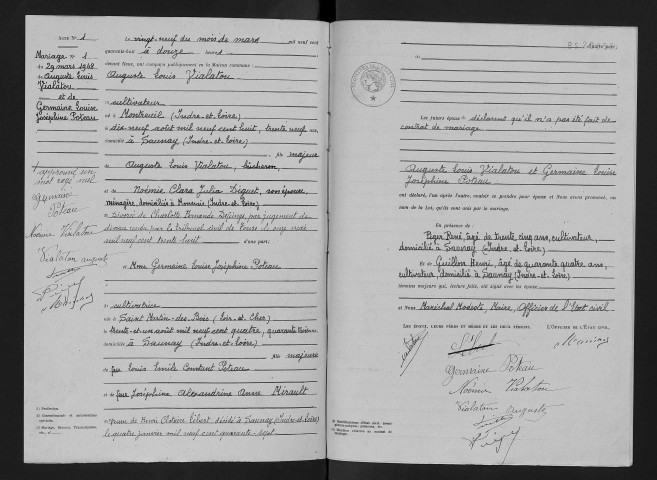 ACTE N° 1
Mariage N° 1
du 29 mars 1948
Auguste Louis
Vialatou
et de
Germaine Louise
Joséphine Poteau
+ approuvé un
mot rayé nul
Germaine
Poteau
Noémie Vialatou
Vialatou auguste
Le vingt-neuf du mois de mars mil neuf cent
quarante-huit à douze heures
devant Nous, ont comparu publiquement en la Maison commune :
Auguste Louis Vialatou
cultivateur
né à Montreuil (Indre-et-Loire)
le dix-neuf août mil neuf cent huit, trente neuf ans,
domicilié à Saunay (Indre-et-Loire)
fils majeur
de Auguste Louis Vialatou, bûcheron,
et de Noémie Clara Julia Diguet, son épouse,
ménagère, domiciliés à (Indre et Loire)
Divorcé de Charlotte Fernande par jugement de
divorce rendu par le Tribunal civil de Tours le onze
mil neuf cent trente huit d'une part;
et Mme Germaine Louise Joséphine Poteau
cultivatrice
née à Saint Martin-des-Bois (Loir-et-Cher)
le trente-et-un août mil neuf cent quatre, quarante trois ans
domiciliée à Saunay (Indre et Loire)
fille majeure
de feu Louis Emile Constant Poteau
et de feue Joséphine Alexandrine Anne Mirault
Veuve de Henri Libert décédé à Saunay (Indre et Loire)
le quatre janvier mil neuf cent quarante-sept
Les futurs époux déclarent qu'il n'a pas été fait de
contrat de mariage.
Auguste Louis Vialatou et Germaine Louise
Joséphine Poteau
ont déclaré, l'un après l'autre, vouloir se prendre pour époux et Nous avons prononcé, au
nom de la Loi, qu'ils sont unis par le mariage.
En présence de
René, âgé de trente cinq ans, cultivateur,
domicilié à Saunay (Indre et Loire)
Et de Guillon Henri, âgé de quarante quatre ans,
cultivateur, domicilié à Saunay (Indre-et-Loire)
témoins majeurs qui, lecture faite, ont signé avec les époux
et Nous Maréchal Modeste, Maire, Officier de l'Etat civil.
LES ÉPOUX, LEURS PÈRES ET MÈRES ET LES DEUX TÉMOINS,
L'OFFICIER DE L'ÉTAT CIVIL,
Germaine Poteau
Noémie Vialatou
Vialatou Auguste